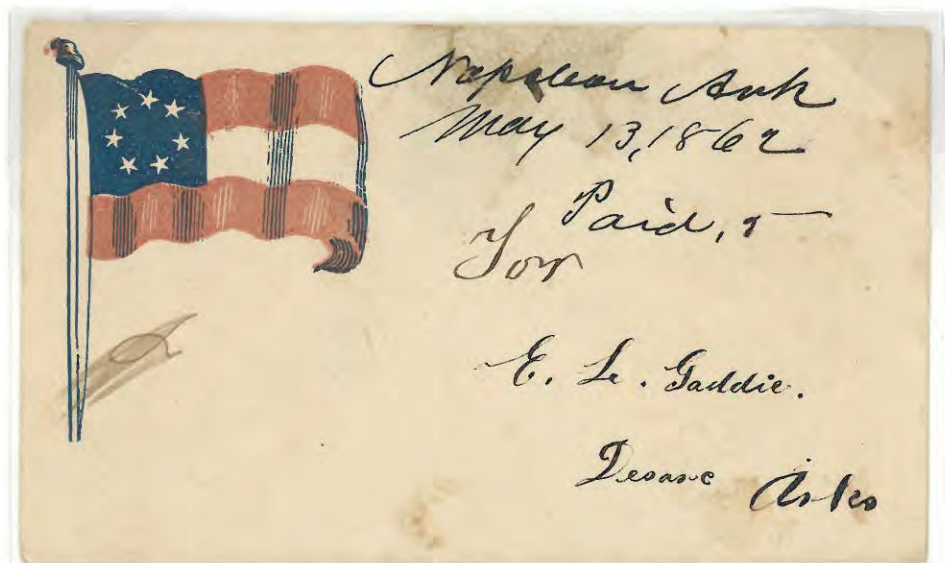 Napoleon Ark
May 13, 1862
Paid, 5
For
E. L. Gaddie.
Desarc Arks